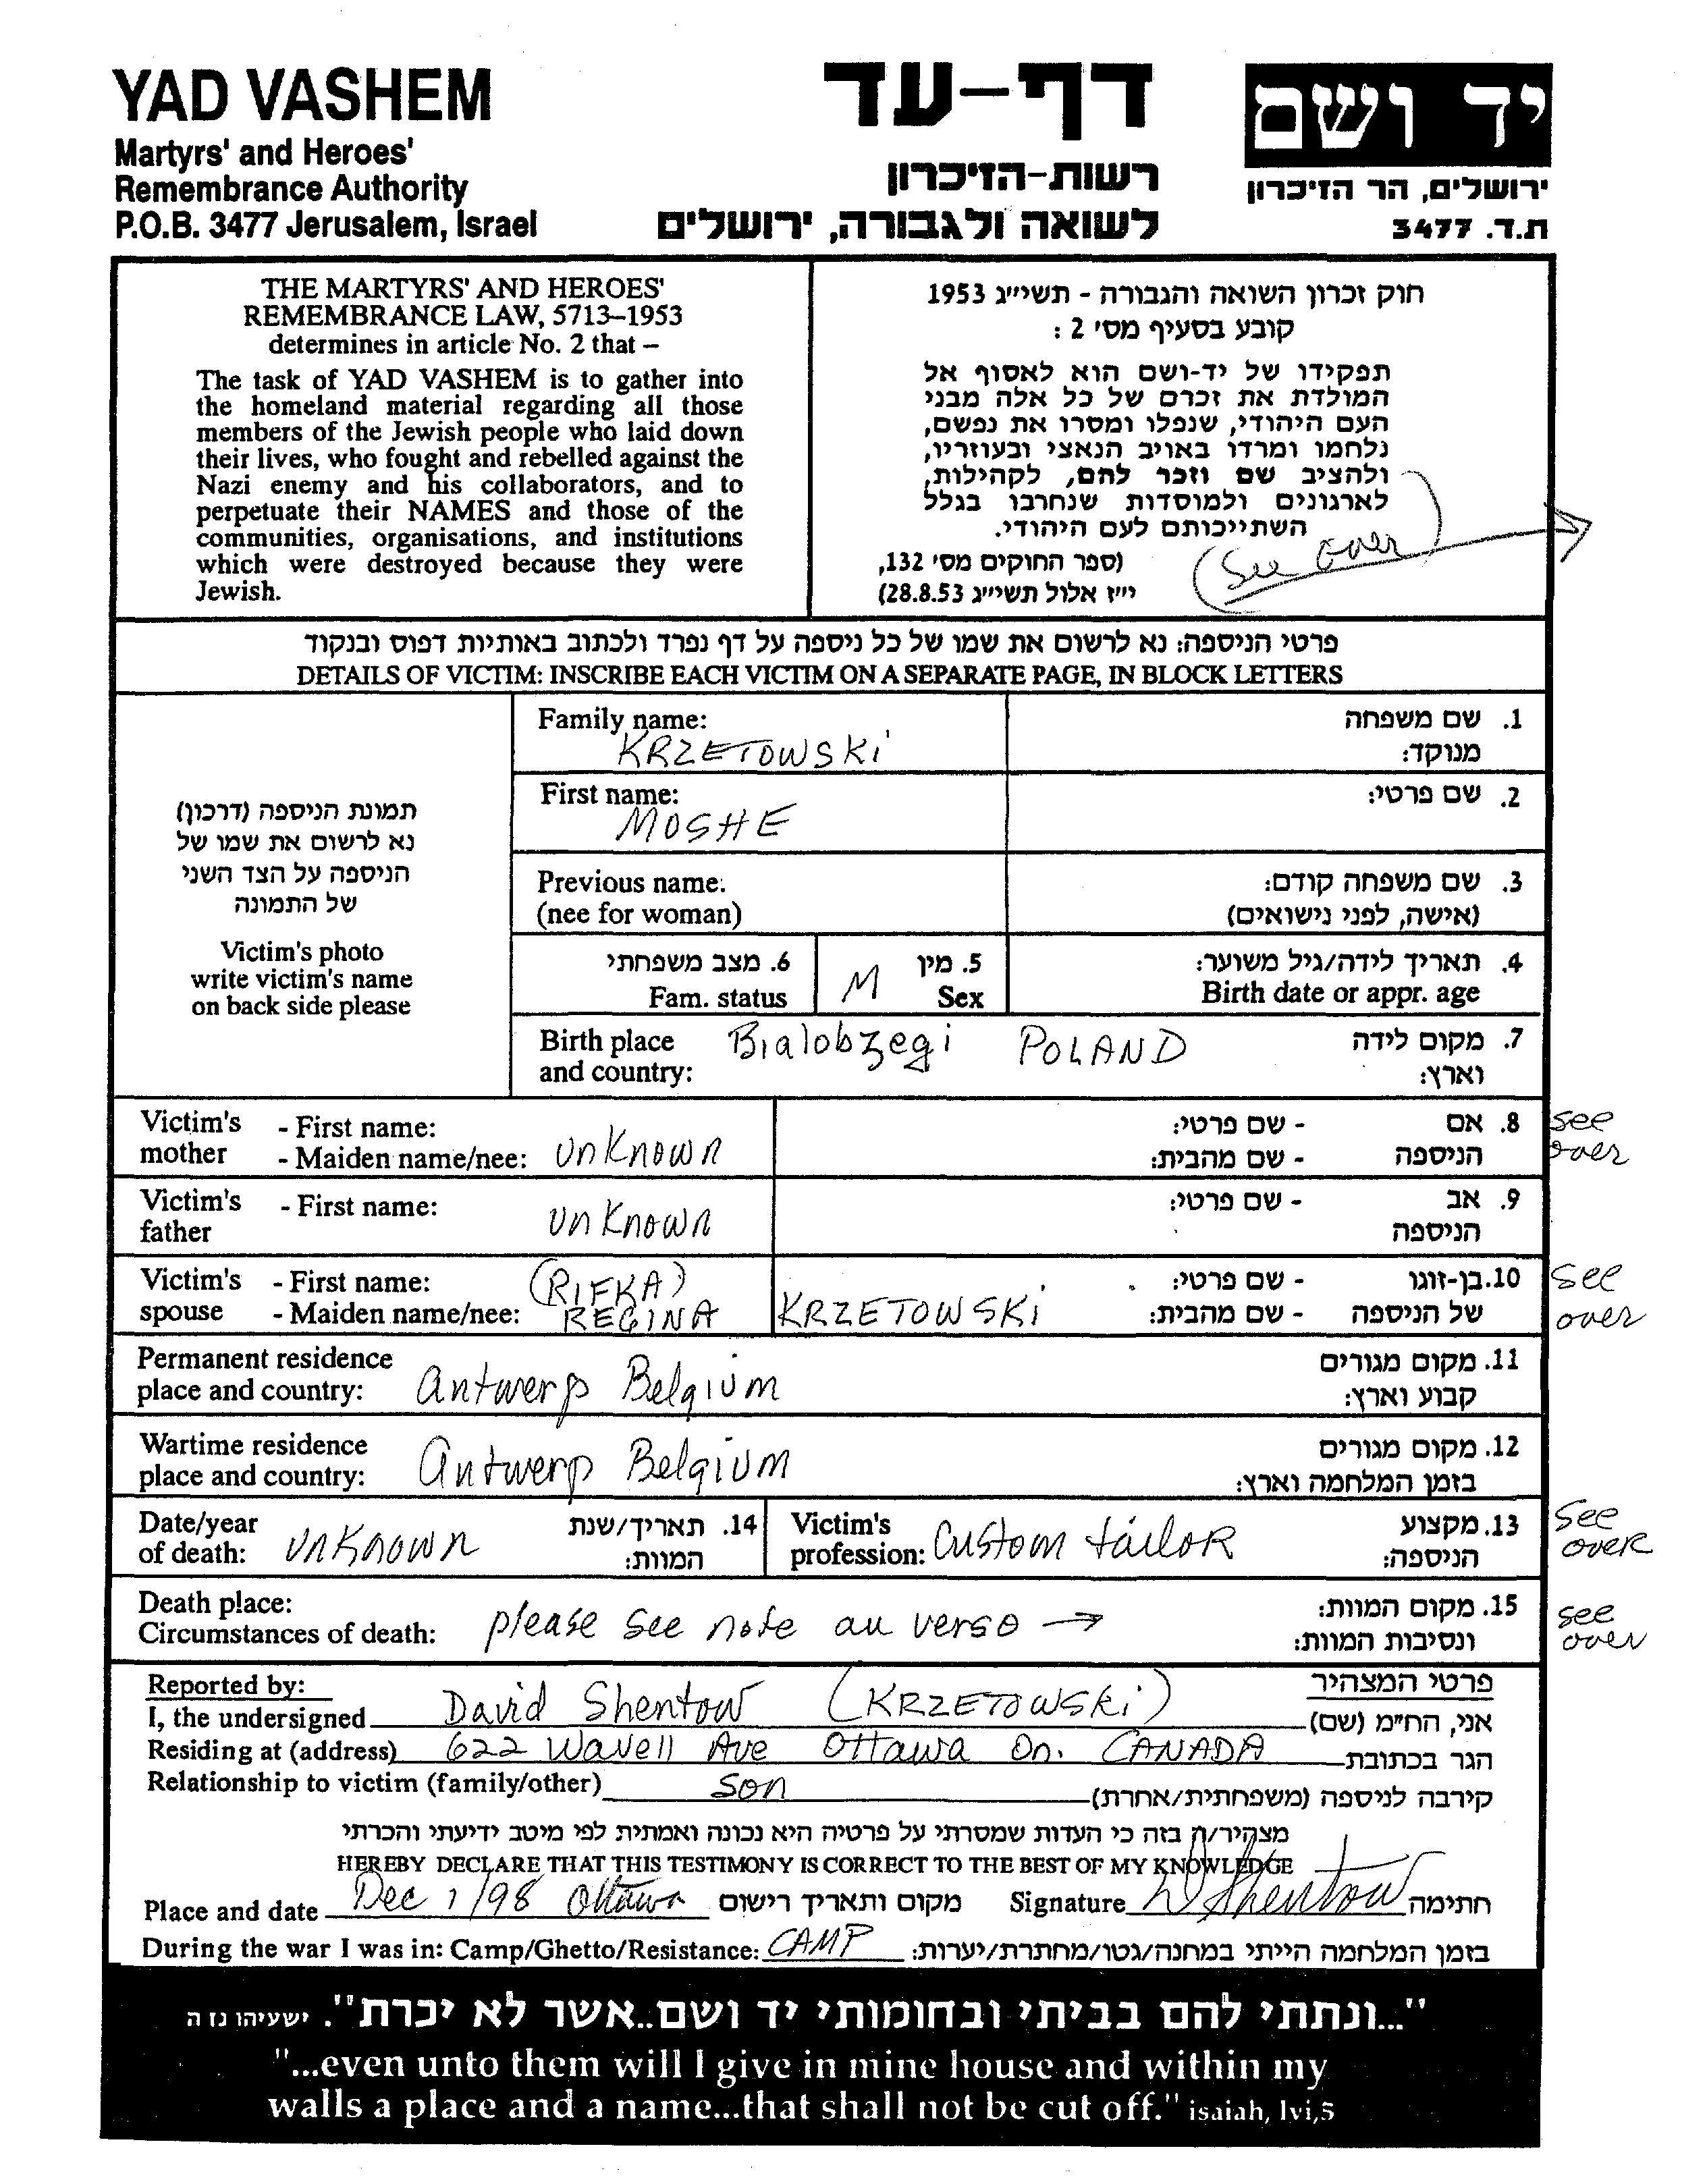 YAD VASHEM
Martyrs' and Heroes'
Remembrance Authority
P.O.B. 3477 Jerusalem, Israel
דף-עד
רשות-הזיכרון
לשואה ולגבורה, ירושלים
יד ושם
ירושלים, הר הזיכרון
ת.ד. 3477
THE MARTYRS' AND HEROES'
REMEMBRANCE LAW, 5713–1953
determines in article No. 2 that –
The task of YAD VASHEM is to gather into
the homeland material regarding all those
members of the Jewish people who laid down
their lives, who fought and rebelled against the
Nazi enemy and his collaborators, and to
perpetuate their NAMES and those of the
communities, organisations, and institutions
which were destroyed because they were
Jewish.
חוק זכרון השואה והגבורה - תשי״ג 1953
קובע בסעיף מס׳ 2 :
תפקידו של יד-ושם הוא לאסוף אל
המולדת את זכרם של כל אלה מבני
העם היהודי, שנפלו ומסרו את נפשם,
נלחמו ומרדו באויב הנאצי ובעוזריו,
ולהציב שם וזכר להם, לקהילות,
לארגונים ולמוסדות שנחרבו בגלל
השתייכותם לעם היהודי.
(ספר החוקים מס׳ 132,
י״ז אלול תשי״ג 28.8.53)
(See over)
פרטי הניספה: נא לרשום את שמו של כל ניספה על דף נפרד ולכתוב באותיות דפוס ובנקוד
DETAILS OF VICTIM: INSCRIBE EACH VICTIM ON A SEPARATE PAGE, IN BLOCK LETTERS
תמונת הניספה (דרכון)
נא לרשום את שמו של
הניספה על הצד השני
של התמונה
Victim's photo
write victim's name
on back side please
Family name: 1. שם משפחה
KRZETOWSKI מנוקד:
First name: 2. שם פרטי:
MOSHE
Previous name: 3. שם משפחה קודם:
(nee for woman) (אישה, לפני נישואים)
6. מצב משפחתי 5. מין 4. תאריך לידה/גיל משוער:
Fam. status M Sex Birth date or appr. age
Birth place Bialobzegi POLAND 7. מקום לידה
and country: וארץ:
Victim's - First name: - שם פרטי: 8. אם see
mother - Maiden name/nee: unknown - שם מהבית: הניספה over
Victim's - First name: - שם פרטי: 9. אב
father unknown הניספה
Victim's - First name: (RIFKA) - שם פרטי: 10. בן-זוגו see
spouse - Maiden name/nee: REGINA KRZETOWSKI - שם מהבית: של הניספה over
Permanent residence 11. מקום מגורים
place and country: Antwerp Belgium קבוע וארץ:
Wartime residence 12. מקום מגורים
place and country: Antwerp Belgium בזמן המלחמה וארץ:
Date/year 14. תאריך/שנת Victim's 13. מקצוע see
of death: unknown המוות: profession: Custom tailor הניספה: over
Death place: 15. מקום המוות: see
Circumstances of death: please see note au verso → ונסיבות המוות: over
Reported by: פרטי המצהיר
I, the undersigned David Shentow (KRZETOWSKI) אני, הח״מ (שם)
Residing at (address) 622 Wavell Ave Ottawa On. CANADA הגר בכתובת
Relationship to victim (family/other) Son קירבה לניספה (משפחתית/אחרת)
מצהיר/ה בזה כי העדות שמסרתי על פרטיה היא נכונה ואמתית לפי מיטב ידיעתי והכרתי
HEREBY DECLARE THAT THIS TESTIMONY IS CORRECT TO THE BEST OF MY KNOWLEDGE
Place and date Dec 1/98 Ottawa מקום ותאריך רישום Signature D Shentow חתימה
During the war I was in: Camp/Ghetto/Resistance: CAMP בזמן המלחמה הייתי במחנה/גטו/מחתרת/יערות:
"...ונתתי להם בביתי ובחומותי יד ושם..אשר לא יכרת". ישעיהו נז ה
"...even unto them will I give in mine house and within my
walls a place and a name...that shall not be cut off." isaiah, lvi,5